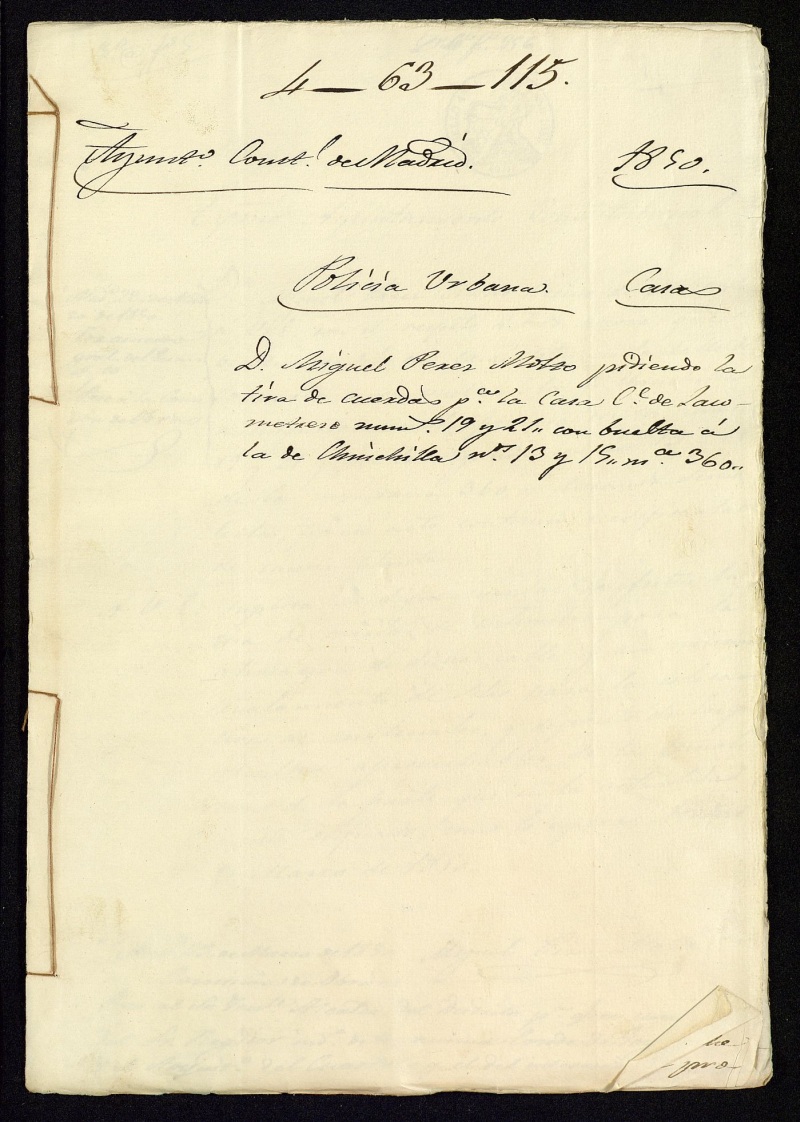 4 — 63 — 115.
Ayunto. Const.l de Madrid. 1850.
Policia Urbana. Casas
D. Miguel Perez pidiendo la
tira de cuerdas p.a la Casa C.e de Jaco-
metrezo num.s 19 y 21,, con buelta á
la de Chinchilla n.os 13 y 15,, m.a 360,,
pro-